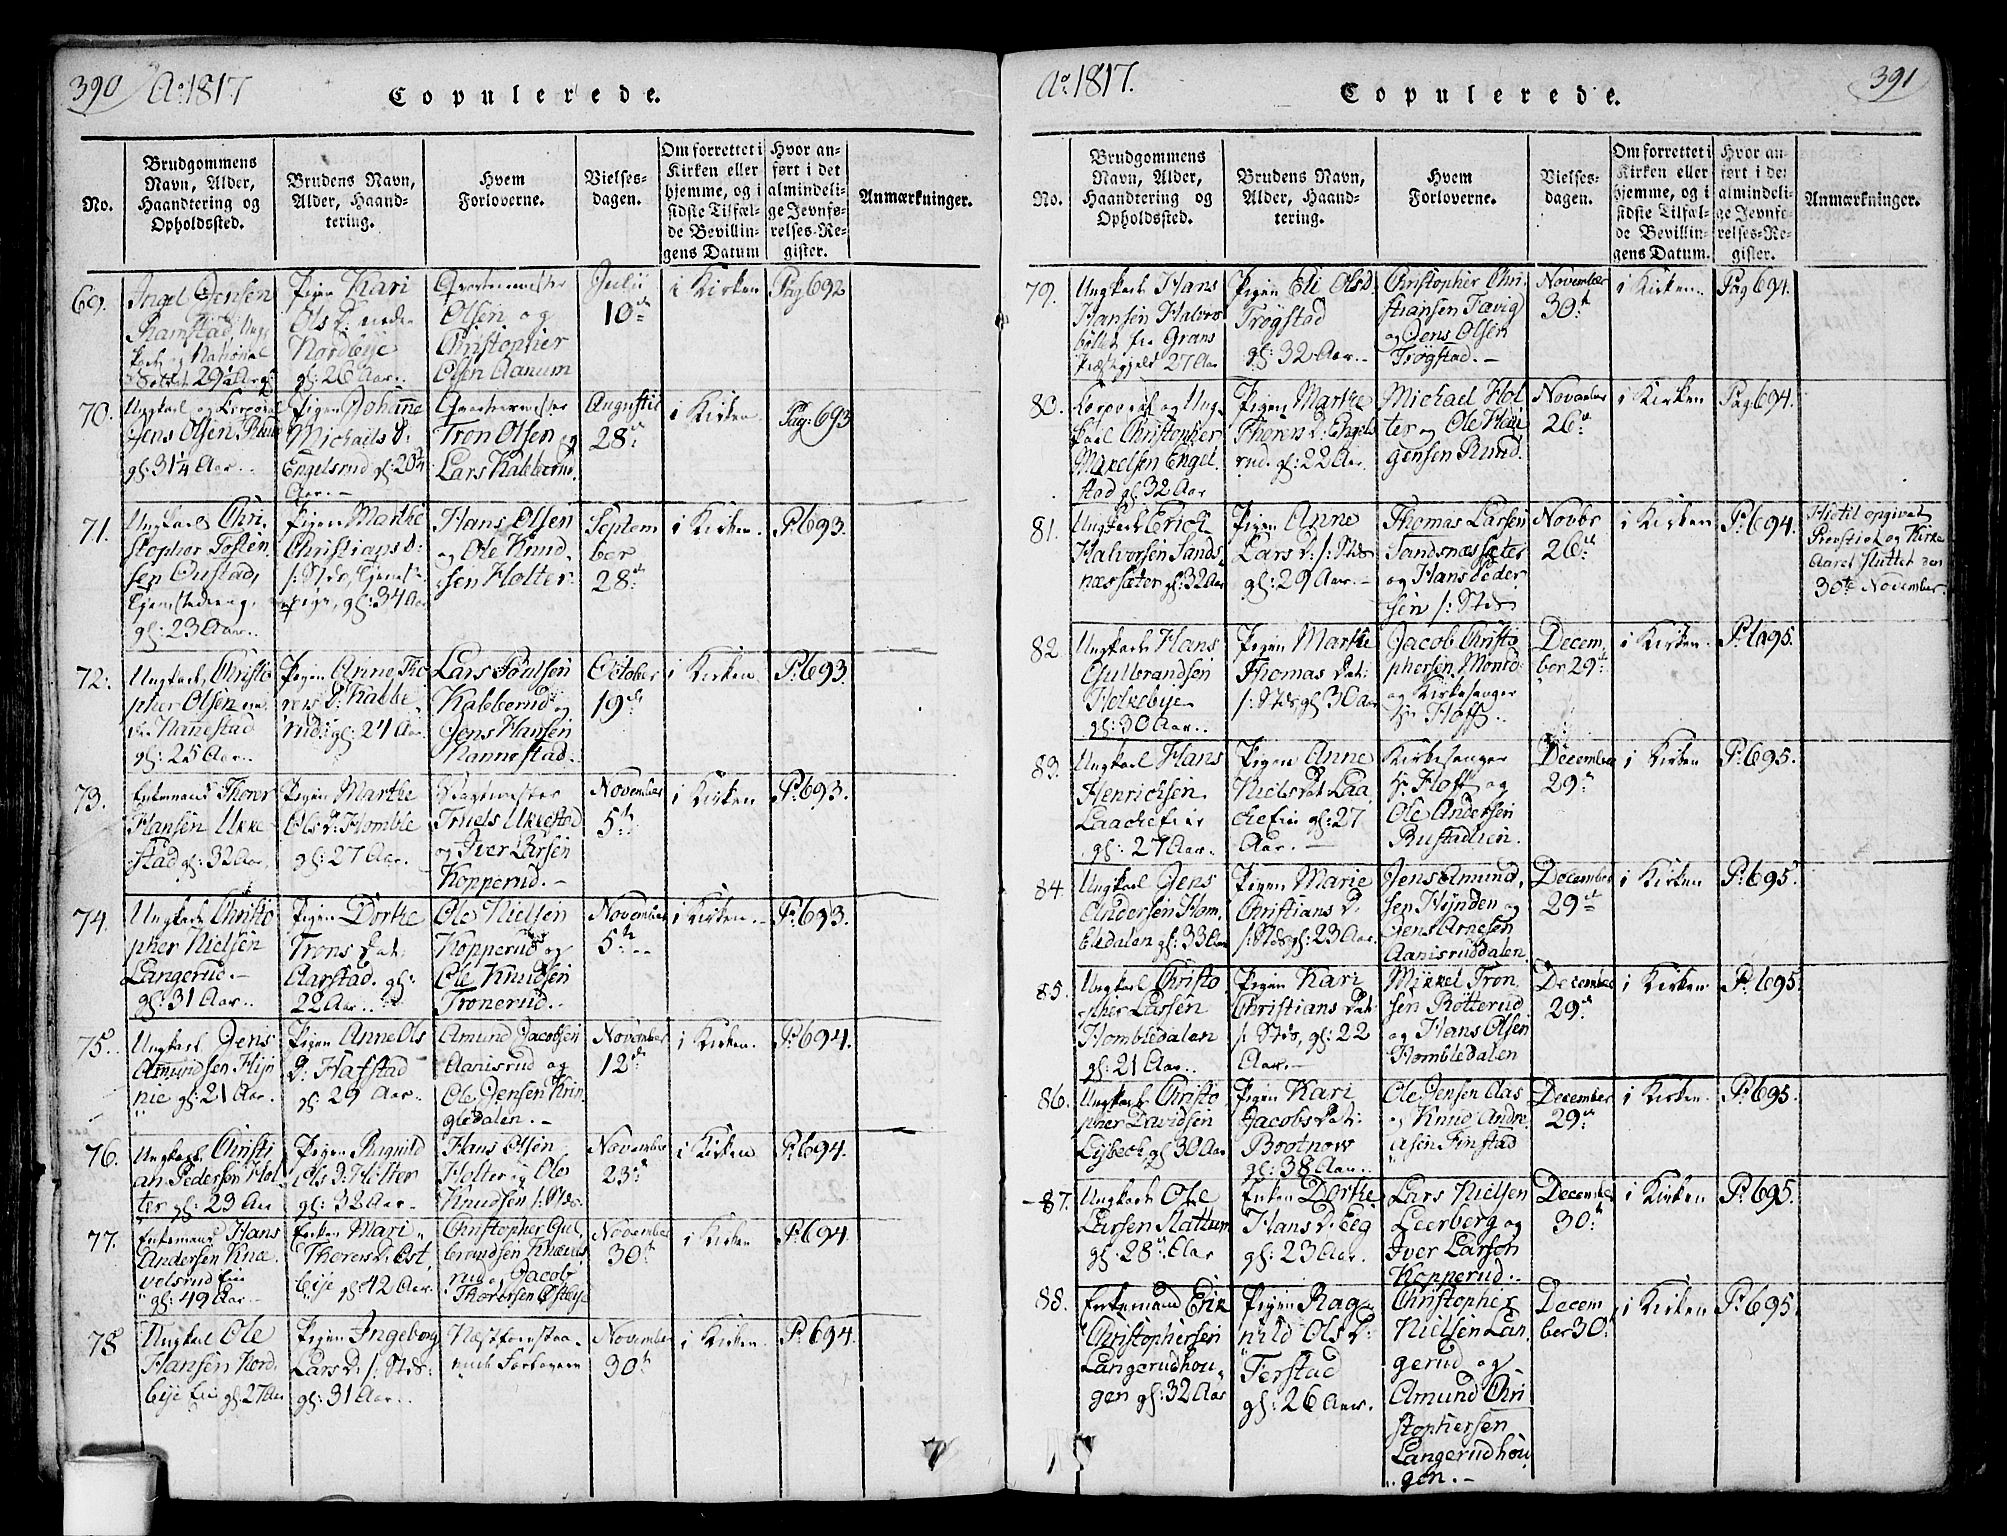 390
Ao. 1817
Copulerede.
No.
Brudgommens
Navn, Alder,
Haandtering og
Opholdssted.
Brudens Navn,
Alder, Haand-
tering.
Hvem
Forloverne.
Vielses-
dagen.
Om forrettet i
Kirken eller
hjemme, og i
sidste Tilfæl-
de Bevillin-
gens Datum
Hvor an-
ført i det
almindeli-
ge Jevnfø-
relses-Re-
gister.
Anmærkninger.
69.
Jensen
Ramstad, Ung-
karl og National
29 Aar
Pigen Kari
Ols D: nedre
Nordbye
gl: 26 Aar..
Olsen og
Christopher
Olsen Aanum
Julii
10de
i Kirken
Pag 692
70.
Ungkarl og Korporal
Jens Olsen
gl: 31¼ Aar..
Pigen Johanne
Michaels D:
Engelsrud gl: 20¾
Aar.-
Tron Olsen og
Lars Kabberud.
Augustii
28de
i Kirken
Pag: 693
71.
Ungkarl Chri-
stopher Tosten
sen Oustad,
gl: 23 Aar..
Pigen Marthe
Christians D:
/: Stds, Tjeneste-
pige, gl: 34 Aar
Hans Olsen
og Ole Knud-
sen Holter.
Septem
ber
28de
i Kirken.
P: 693.
72.
Ungkarl Christo
pher Olsen
Nannestad
gl: 25 Aar..
Pigen Anne Tho
rers D: Kabbe-
rud: gl: 24 Aar.
Lars Poulsen
Kabberud og
Jens Hansen
Nannestad.
October
19de
i Kirken
P: 693.
73.
Enkemand Thorer
Hansen Ukke
stad gl: 32 Aar.
Pigen Marthe
Ols D: Homble
gl: 27 Aar.
Truels Ukkestad
og Iver Larsen
Kopperud.-
November
5te
i Kirken
P: 693.
74.
Ungkarl Christo
pher Nielsen
Langerud.-
gl: 31 Aar..
Pigen Dorthe
Trons Dat:
Aarstad. gl:
22 Aar..
Ole Nielsen
Kopperud og
Ole Knudsen
Tronerud..
November
5te
i Kirken.
P: 693.
75.
Ungkarl Jens
Amundsen Hyn
nie gl: 21 Aar.
Pigen Anne Ols
D: Hafstad
gl: 29 Aar..
Amund Jacobsen
Aanisrud og
Ole Jensen Krin-
gledalen.-
November
12de
i Kirken.
P: 694.
76.
Ungkarl Christi
an Pedersen Hol
ter gl: 23 Aar
Pigen Ragnild
Ols D: Holter
gl: 32 Aar..
Hans Olsen
Holter og Ole
Knudsen /: Stds.
November
23de
i Kirken
P: 694.
77.
Enkemand Hans
Andersen Knæ
velsrud Eie
gl: 49 Aar.-
Enken Mari
Thorers D: Øst
bye gl: 42 Aar.
Christopher Gul
brandsen Knævels
rud og Jacob
Thorersen Østbye
November
30te
i Kirken
P: 694.
78
Ungkarl Ole
Hansen Nord-
bye Eie gl: 27 Aar
Pigen Ingeborg
Lars D: /: Stds:
gl: 31 Aar..
Næstforestaa-
ende Forlovere
November
30te
i Kirken.
P: 694.
Ao. 1817.
Copulerede.
391
No.
Brudgommens
Navn, Alder,
Haandtering og
Opholdssted.
Brudens Navn,
Alder, Haand-
tering.
Hvem
Forloverne.
Vielses-
dagen.
Om forrettet i
Kirken eller
hjemme, og i
sidste Tilfæl-
de Bevillin-
gens Datum.
Hvor an-
ført i det
almindeli-
ge Jevnfø-
relses-Re-
gister.
Anmærkninger.
79.
Ungkarl Hans
Hansen Halvors
bølet fra Grans
Præstegjeld 27 Aar
Pigen Eli Olsd.
Trøgstad
gl: 32 Aar..
Christopher Chri-
stiansen Tævig
og Jens Olsen
Trøgstad.-
November
30te
i Kirken.
Pag 694.
80.
Korporal og Ung-
karl Christopher
Mikelsen Engel
stad gl: 32 Aar
Pigen Marthe
Thorers D: Engels
rud. gl: 22 Aar.
Michael Hol
ter og Ole Hen
gensen Rund.
November
26de
i Kirken
Pag. 694.
81.
Ungkarl Erich
Halvorsen Sands
næssæter gl: 32 Aar
Pigen Anne
Lars D: /: Stds
gl: 29 Aar.-
Thomas Larsen
Sandsnæssæter
og Hans Peder
sen /: Stds
Novbr
26de
i Kirken
P: 694.
Hidtil opgivet
og Kirke
Aaret sluttet den
30te November.
82
Ungkarl Hans
Gulbrandsen
Holvebye
gl: 30 Aar..
Pigen Marthe
Thomas Dat:
/: Stds gl: 30 Aar
Jacob Christo
phersen Monrd:
og Kirkesanger
Hr Hoff..
Decem-
ber 29de
i Kirken.
P: 695.
83.
Ungkarl Hans
Henrichsen
Laache Eier
gl: 27 Aar..
Pigen Anne
Niels Dat Laa
che Eie gl: 27
Aar.-
Kirkesanger
Hr Hoff og
Ole Andersen
Rustadlien.
December
29de
i Kirken
P: 695.
84
Ungkarl Jens
Andersen Hom-
bledalen gl: 33 Aar
Pigen Marie
Christians D.
/: Stds gl: 23 Aar.
Jens Amund-
sen Hynden og
Jens Arnesen
Aanisruddalen.
December
29de
i Kirken
P: 695.
85.
Ungkarl Christo
pher Larsen
Hombledalen
gl: 21 Aar..
Pigen Kari
Christians Dat:
/: Stds, gl: 22
Aar.-
Mikkel Tron
sen Bøtterud
og Hans Olsen
Hombledalen
December
29de
i Kirken
P: 695.
86.
Ungkarl Christo
pher Davidsen
gl: 30 Aar
Pigen Kari
Jacobs Dat:
gl: 38 Aar..
Ole Jensen Aas
og Knud Andre
asen Finstad
December
29de
i Kirken
P: 695.
87.
Ungkarl Ole
Larsen Nattum
gl: 28 Aar
Enken Dorthe
Hans D. Eeg
gl: 23 Aar.
Lars Nielsen
Leerberg og
Iver Larsen
Kopperud..
December
30te
i Kirken
P: 695.
88.
Enkemand Erik
Christophersen
Langerudhou-
gen gl: 32 Aar
Pigen Rag-
nild Ols D:
Ferstad
gl: 26 Aar.
Christopher
Nielsen Lan-
gerud og
Amund Chri
stophersen
Langerudhou
gen.-
Decem
ber 30te
i Kirken
P: 695.